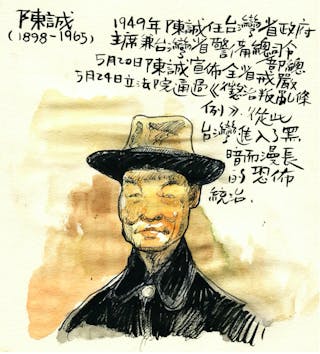 陳誠
(1898-1965)
1949年陳誠任台灣省政府
主席兼台灣省警備總司令
部總
5月20日陳誠宣佈全省戒嚴
5月24日立法院通過《懲治叛亂條
例》.從此
台灣進入了黑
暗而漫長
的恐佈
統治.